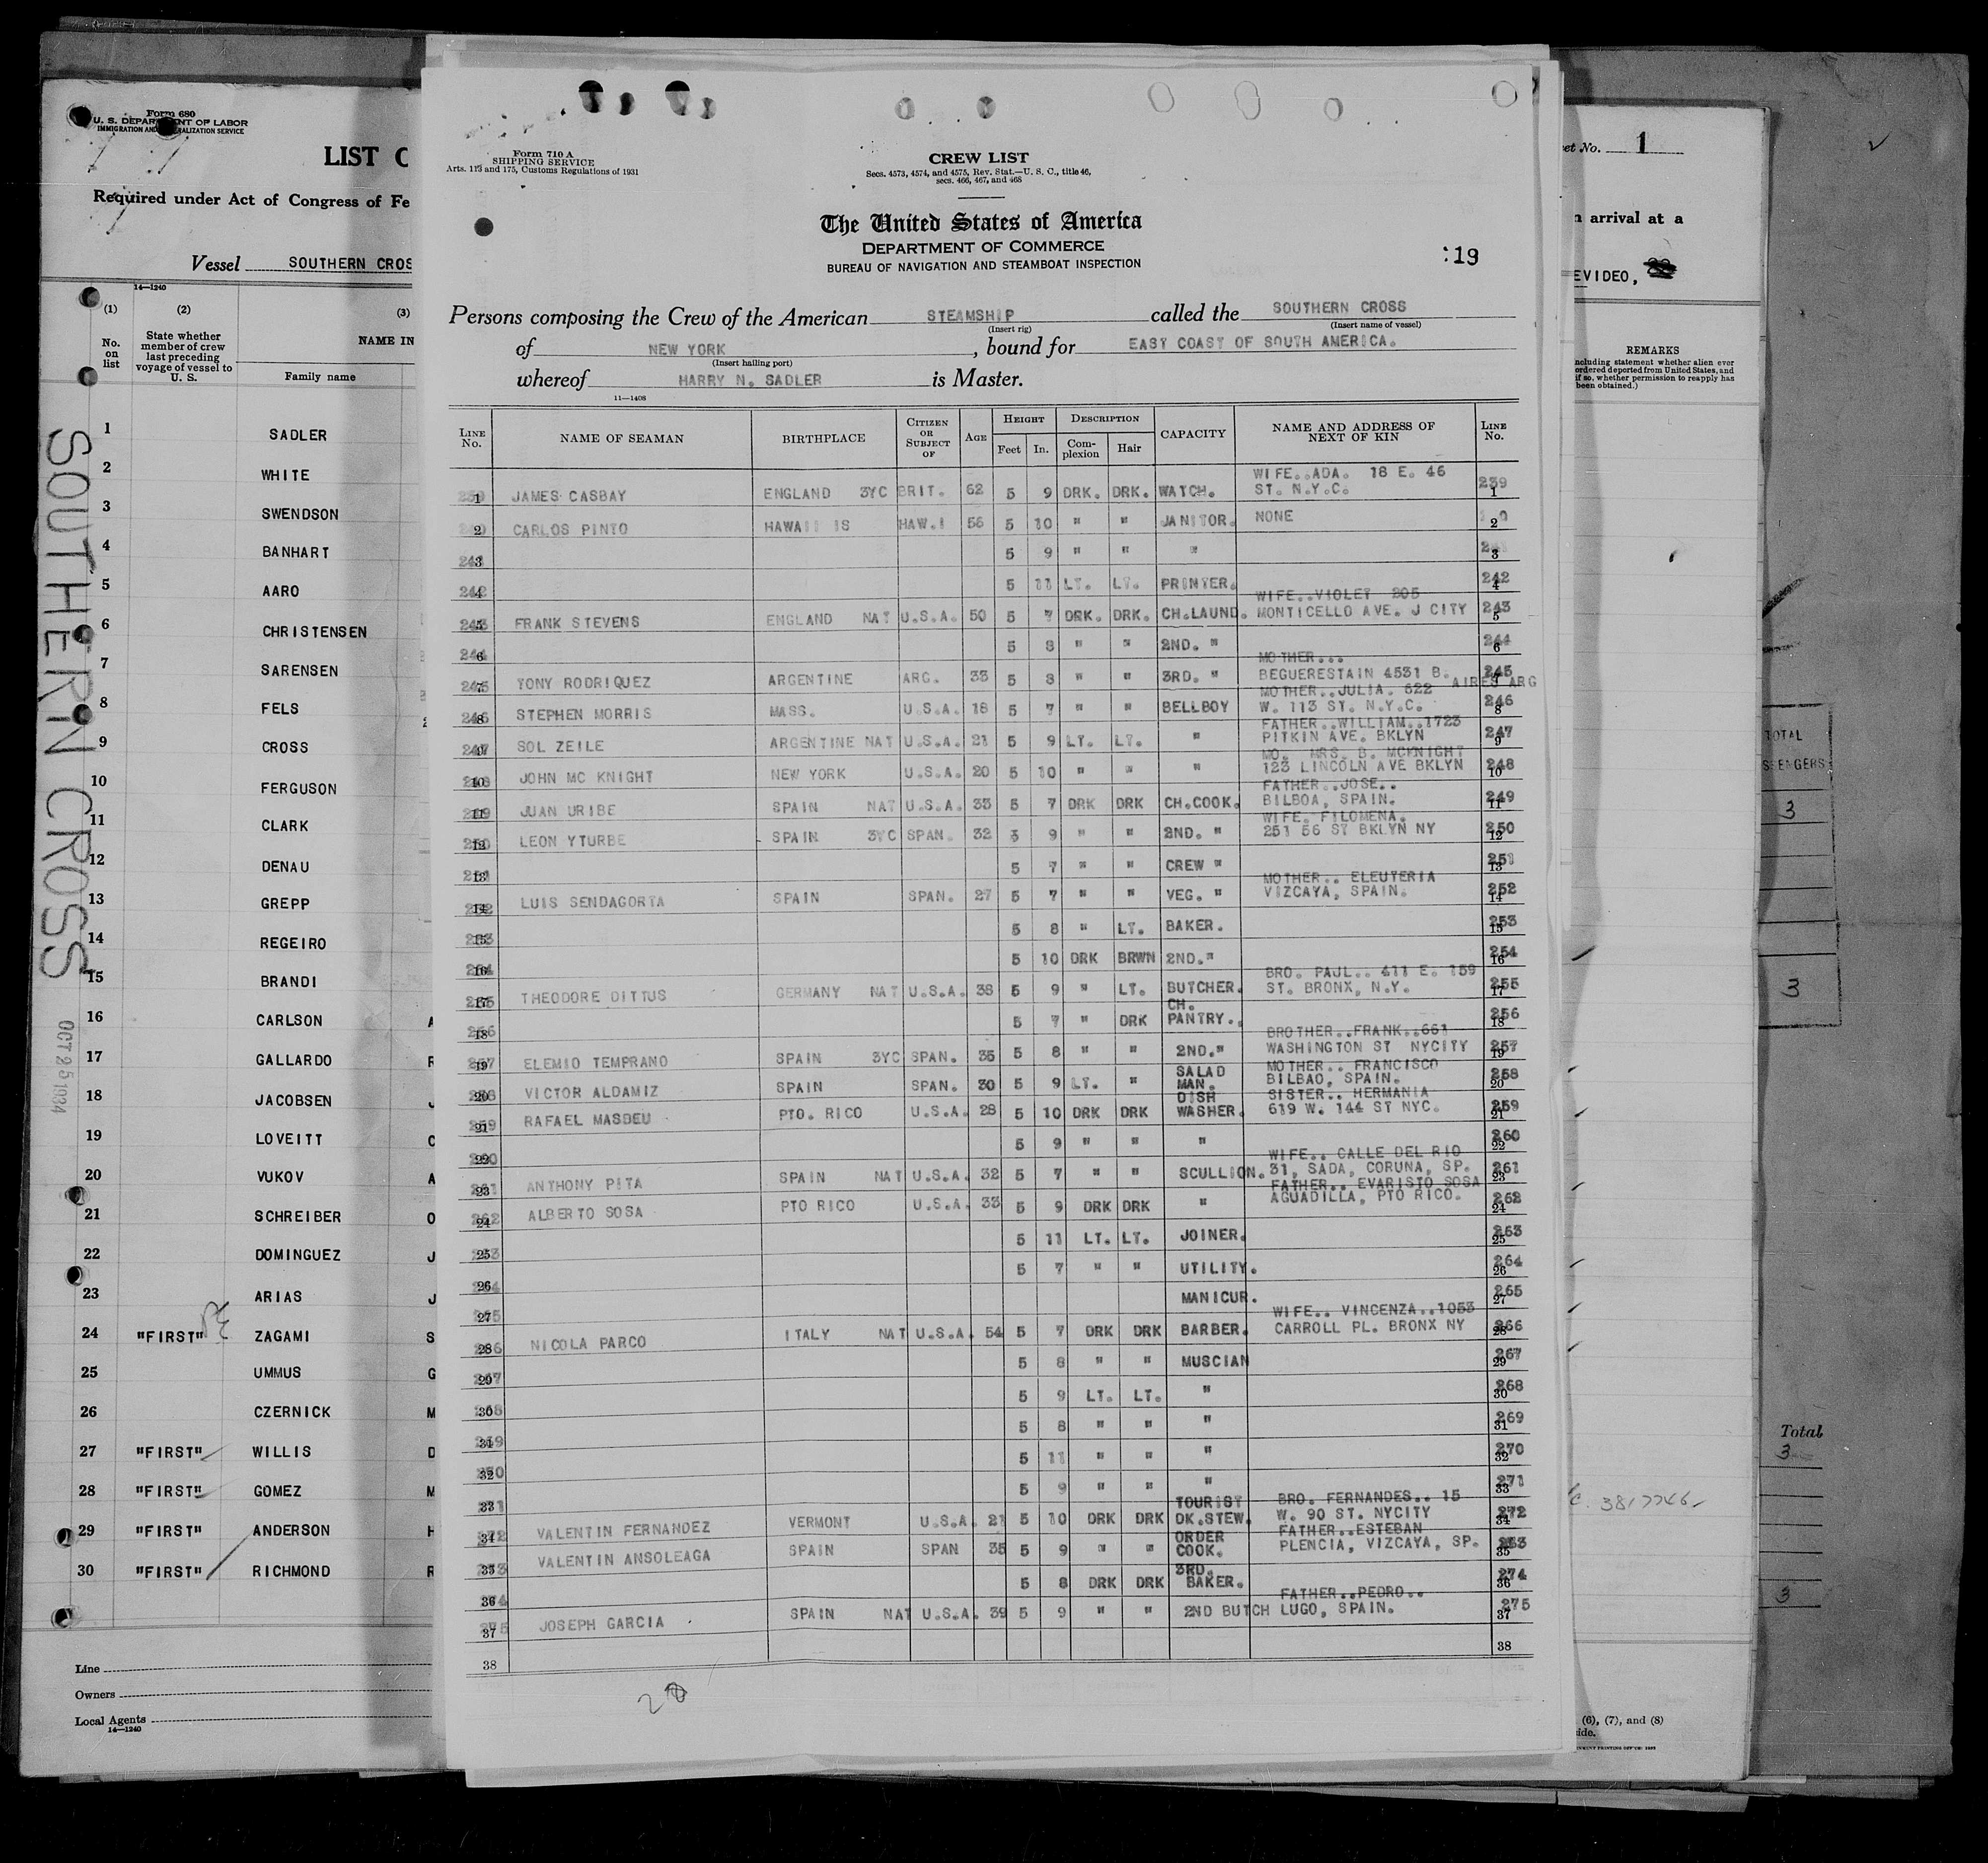 Form 680
U. S. DEPARTMENT OF LABOR
IMMIGRATION AND NATURALIZATION SERVICE
LIST O
Required under Act of Congress of Fe
Vessel SOUTHERN CROS
14—1240
(1) (2) (3)
No. on list
State whether member of crew last preceding voyage of vessel to U. S.
NAME IN
Family name
1 SADLER
2 WHITE
3 SWENDSON
4 BANHART
5 AARO
6 CHRISTENSEN
7 SARENSEN
8 FELS
9 CROSS
10 FERGUSON
11 CLARK
12 DENAU
13 GREPP
14 REGEIRO
15 BRANDI
16 CARLSON A
17 GALLARDO R
18 JACOBSEN J
19 LOVEITT C
20 VUKOV A
21 SCHREIBER O
22 DOMINGUEZ J
23 ARIAS J
24 "FIRST" ZAGAMI S
25 UMMUS G
26 CZERNICK M
27 "FIRST" WILLIS D
28 "FIRST" GOMEZ M
29 "FIRST" ANDERSON H
30 "FIRST" RICHMOND R
Line
Owners
Local Agents
14—1240
SOUTHERN CROSS
OCT 25 1934
Form 710 A
SHIPPING SERVICE
Arts. 113 and 175, Customs Regulations of 1931
CREW LIST
Secs. 4573, 4574, and 4575, Rev. Stat.—U. S. C., title 46,
secs. 466, 467, and 468
The United States of America
DEPARTMENT OF COMMERCE
BUREAU OF NAVIGATION AND STEAMBOAT INSPECTION
:19
Persons composing the Crew of the American STEAMSHIP called the SOUTHERN CROSS
(Insert rig) (Insert name of vessel)
of NEW YORK, bound for EAST COAST OF SOUTH AMERICA.
(Insert hailing port)
whereof HARRY N. SADLER is Master.
11—1408
LINE No. NAME OF SEAMAN BIRTHPLACE CITIZEN OR SUBJECT OF AGE HEIGHT DESCRIPTION CAPACITY NAME AND ADDRESS OF NEXT OF KIN LINE No.
Feet In. Complexion Hair
WIFE..ADA. 18 E. 46
1 JAMES CASBAY ENGLAND 3YC BRIT. 62 5 9 DRK. DRK. WATCH. ST. N.Y.C. 239 1
2 CARLOS PINTO HAWAII IS HAW.I 56 5 10 " " JANITOR. NONE 2
3 5 9 " " " 3
242 4 5 11 LT. LT. PRINTER. 242 4
WIFE..VIOLET 205
243 5 FRANK STEVENS ENGLAND NAT U.S.A. 50 5 7 DRK. DRK. CH.LAUND. MONTICELLO AVE. J CITY 243 5
244 6 5 8 " " 2ND. " 244 6
MOTHER...
245 7 TONY RODRIQUEZ ARGENTINE ARG. 33 5 8 " " 3RD. " BEGUERESTAIN 4531 B. AIRES ARG 245 7
MOTHER..JULIA. 622
246 8 STEPHEN MORRIS MASS. U.S.A. 18 5 7 " " BELLBOY W. 113 ST. N.Y.C. 246 8
FATHER..WILLIAM..1723
247 9 SOL ZEILE ARGENTINE NAT U.S.A. 21 5 9 LT. LT. " PITKIN AVE. BKLYN 247 9
MO. MRS. B. MCKNIGHT
10 JOHN MC KNIGHT NEW YORK U.S.A. 20 5 10 " " " 123 LINCOLN AVE BKLYN 248 10
FATHER..JOSE..
11 JUAN URIBE SPAIN NAT U.S.A. 33 5 7 DRK DRK CH.COOK. BILBOA, SPAIN. 249 11
WIFE. FILOMENA.
12 LEON YTURBE SPAIN 3YC SPAN. 32 3 9 " " 2ND. " 251 56 ST BKLYN NY 250 12
13 5 7 " " CREW " 251 13
MOTHER.. ELEUTERIA
14 LUIS SENDAGORTA SPAIN SPAN. 27 5 7 " " VEG. " VIZCAYA, SPAIN. 252 14
15 5 8 " LT. BAKER. 253 15
16 5 10 DRK BRWN 2ND." 254 16
BRO. PAUL.. 411 E. 159
17 THEODORE DITTUS GERMANY NAT U.S.A. 38 5 9 " LT. BUTCHER. ST. BRONX, N.Y. 255 17
CH.
18 5 7 " DRK PANTRY.. 256 18
BROTHER..FRANK..661
19 ELEMIO TEMPRANO SPAIN 3YC SPAN. 35 5 8 " " 2ND." WASHINGTON ST NYCITY 257 19
SALAD MOTHER.. FRANCISCO
20 VICTOR ALDAMIZ SPAIN SPAN. 30 5 9 LT. " MAN. BILBAO, SPAIN. 258 20
DISH SISTER.. HERMANIA
21 RAFAEL MASDEU PTO. RICO U.S.A. 28 5 10 DRK DRK WASHER. 619 W. 144 ST NYC. 259 21
22 5 9 " " " 260 22
WIFE.. CALLE DEL RIO
23 ANTHONY PITA SPAIN NAT U.S.A. 32 5 7 " " SCULLION. 31, SADA, CORUNA, SP. 261 23
FATHER.. EVARISTO SOSA
24 ALBERTO SOSA PTO RICO U.S.A. 33 5 9 DRK DRK " AGUADILLA, PTO RICO. 262 24
25 5 11 LT. LT. JOINER. 263 25
26 5 7 " " UTILITY. 264 26
27 MANICUR. 265 27
WIFE.. VINCENZA..1053
28 NICOLA PARCO ITALY NAT U.S.A. 54 5 7 DRK DRK BARBER. CARROLL PL. BRONX NY 266 28
29 5 8 " " MUSCIAN 267 29
30 5 9 LT. LT. " 268 30
31 5 8 " " " 269 31
32 5 11 " " " 270 32
33 5 9 " " " 271 33
TOURIST BRO. FERNANDES.. 15
34 VALENTIN FERNANDEZ VERMONT U.S.A. 21 5 10 DRK DRK DK.STEW. W. 90 ST. NYCITY 272 34
ORDER FATHER..ESTEBAN
35 VALENTIN ANSOLEAGA SPAIN SPAN 35 5 9 " " COOK. PLENCIA, VIZCAYA, SP. 35
3RD.
36 5 8 DRK DRK BAKER. 274 36
FATHER..PEDRO..
37 JOSEPH GARCIA SPAIN NAT U.S.A. 39 5 9 " " 2ND BUTCH LUGO, SPAIN. 275 37
38 38
et No. 1
n arrival at a
EVIDEO,
REMARKS
ncluding statement whether alien ever
ordered deported from United States, and
if so, whether permission to reapply has
been obtained.)
(6), (7), and (8)
ide.
TOTAL
SSENGERS
3
3
Total
3
3